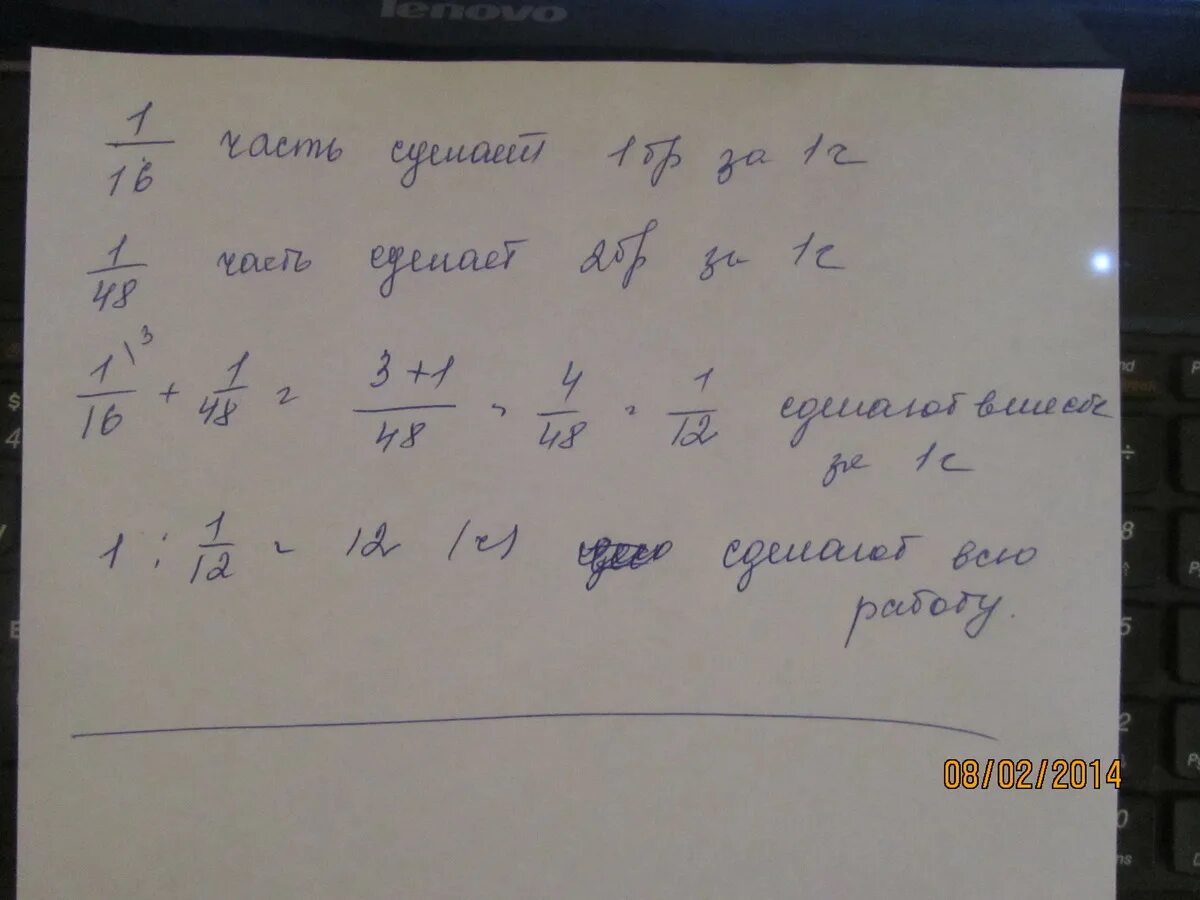 lenovo
1/16 часть сделает 1бр за 1ч
1/48 часть сделает 2бр за 1ч
1\3/16 + 1/48 = 3+1/48 = 4/48 = 1/12 сделают вместе
за 1ч
1 : 1/12 = 12 (ч) сделают всю
работу.
08/02/2014